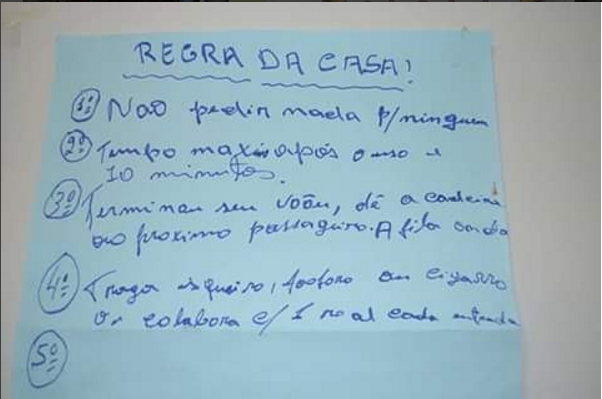 REGRA DA CASA!
1º Não pedir nada p/ ninguem
2º Tempo maximo após o uso é
10 minutos.
3º Terminou seu voou, dê a cadeira
ao proximo passageiro. A fila anda
4º Traga isqueiro, fosforo ou cigarro
Ou colabora c/ 1 real cada entrada
5º